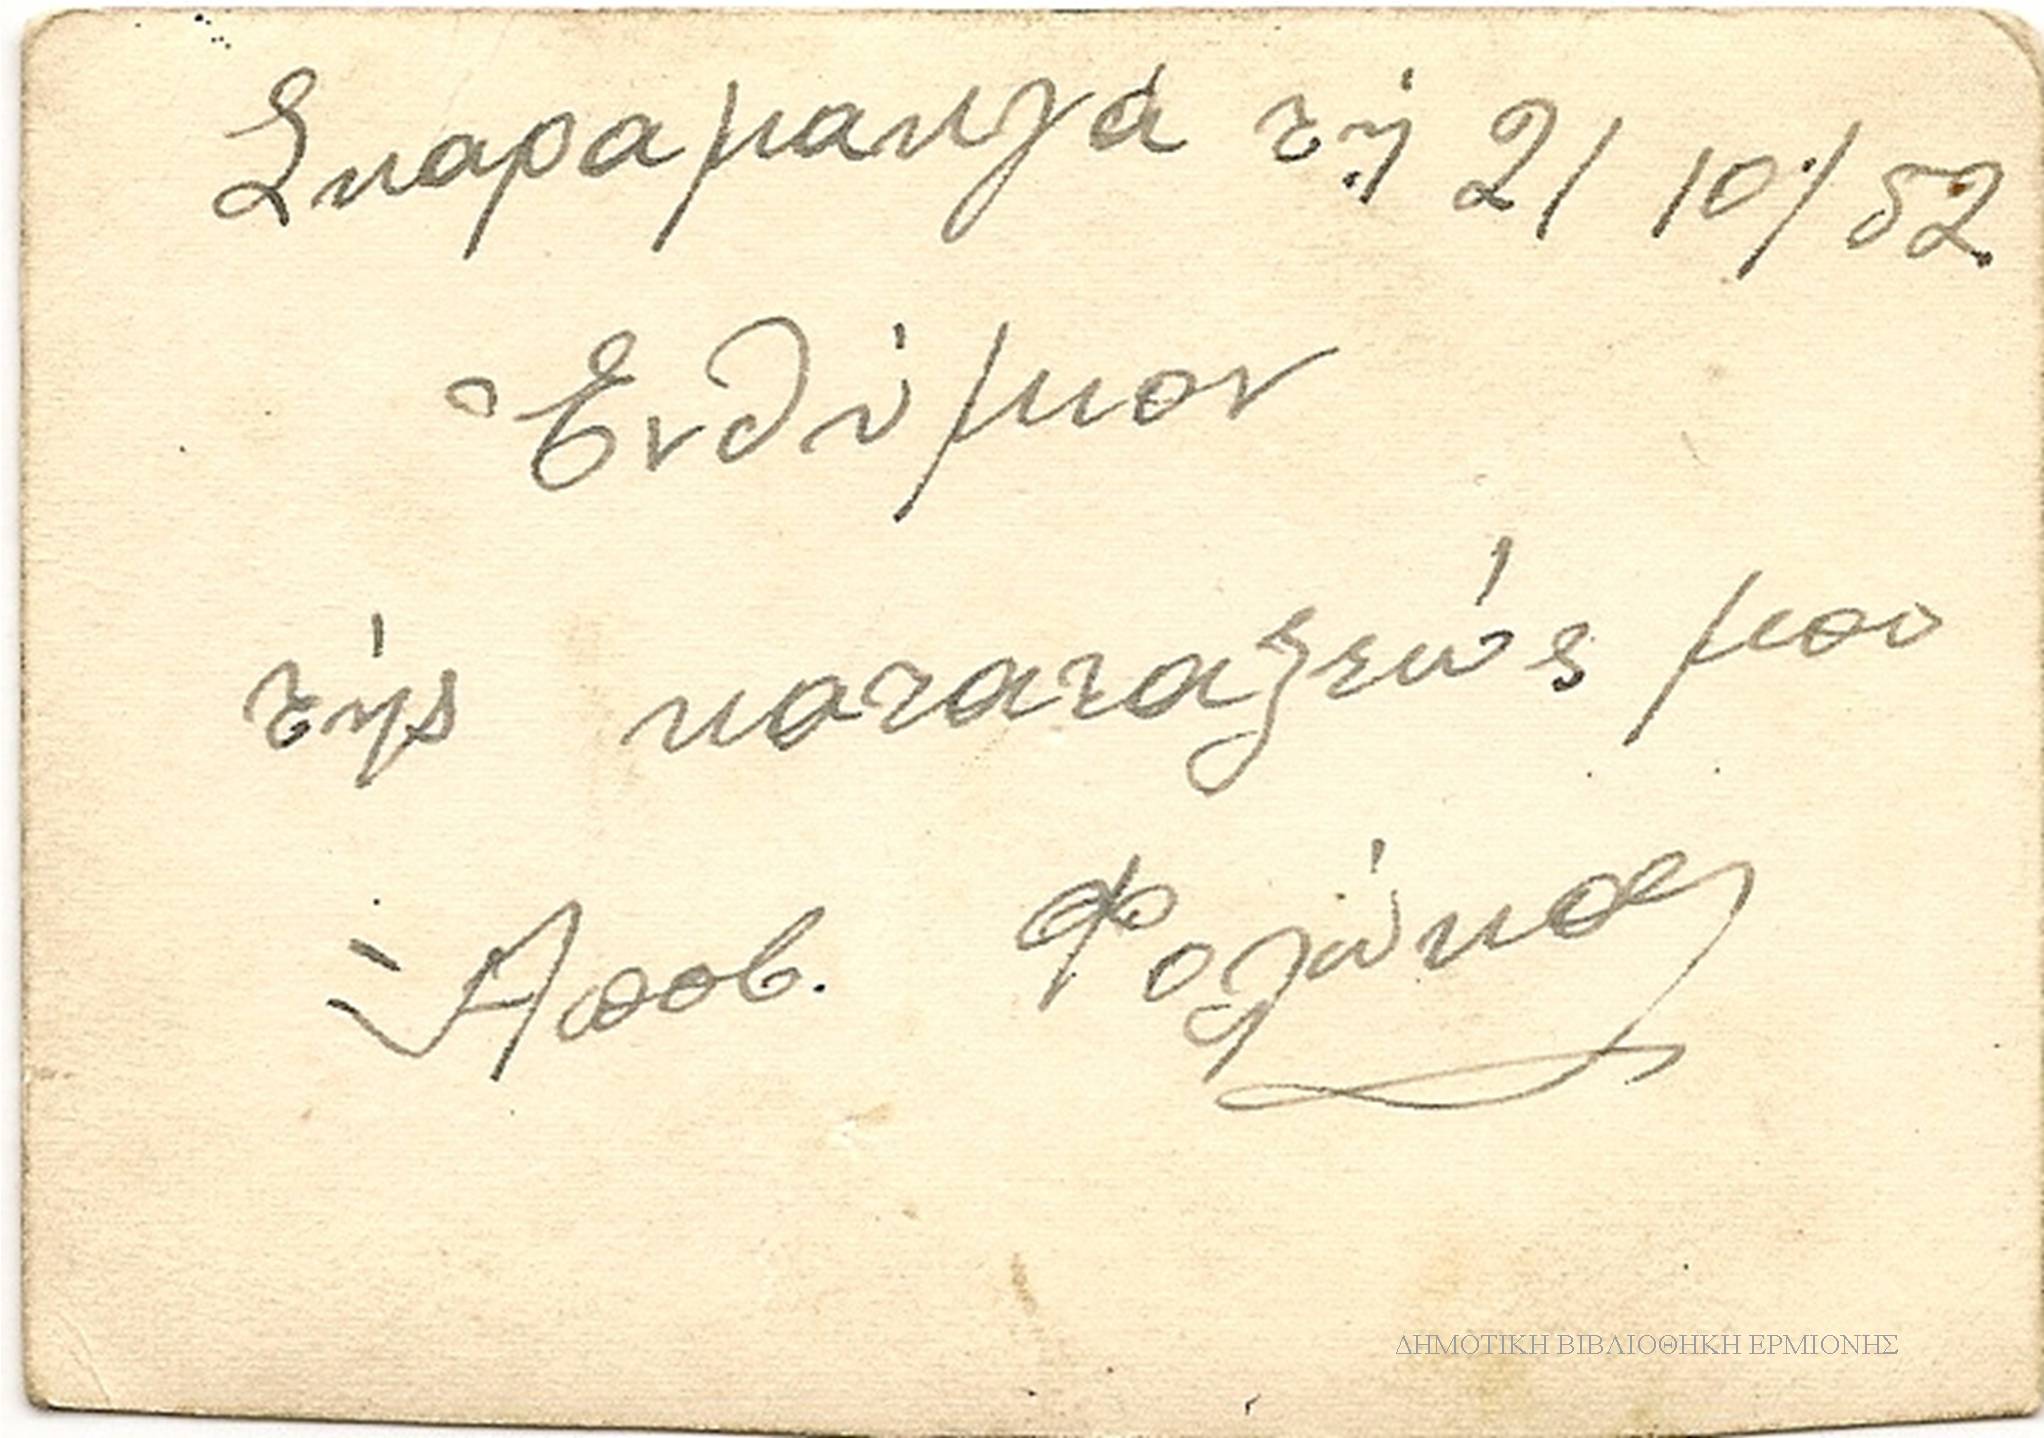 Σκαραμανγά τῇ 2/10/52
Ἐνθύμιον
τής καταταξεώς μου
Ἀποσ. Φολάκας
ΔΗΜΟΤΙΚΗ ΒΙΒΛΙΟΘΗΚΗ ΕΡΜΙΟΝΗΣ